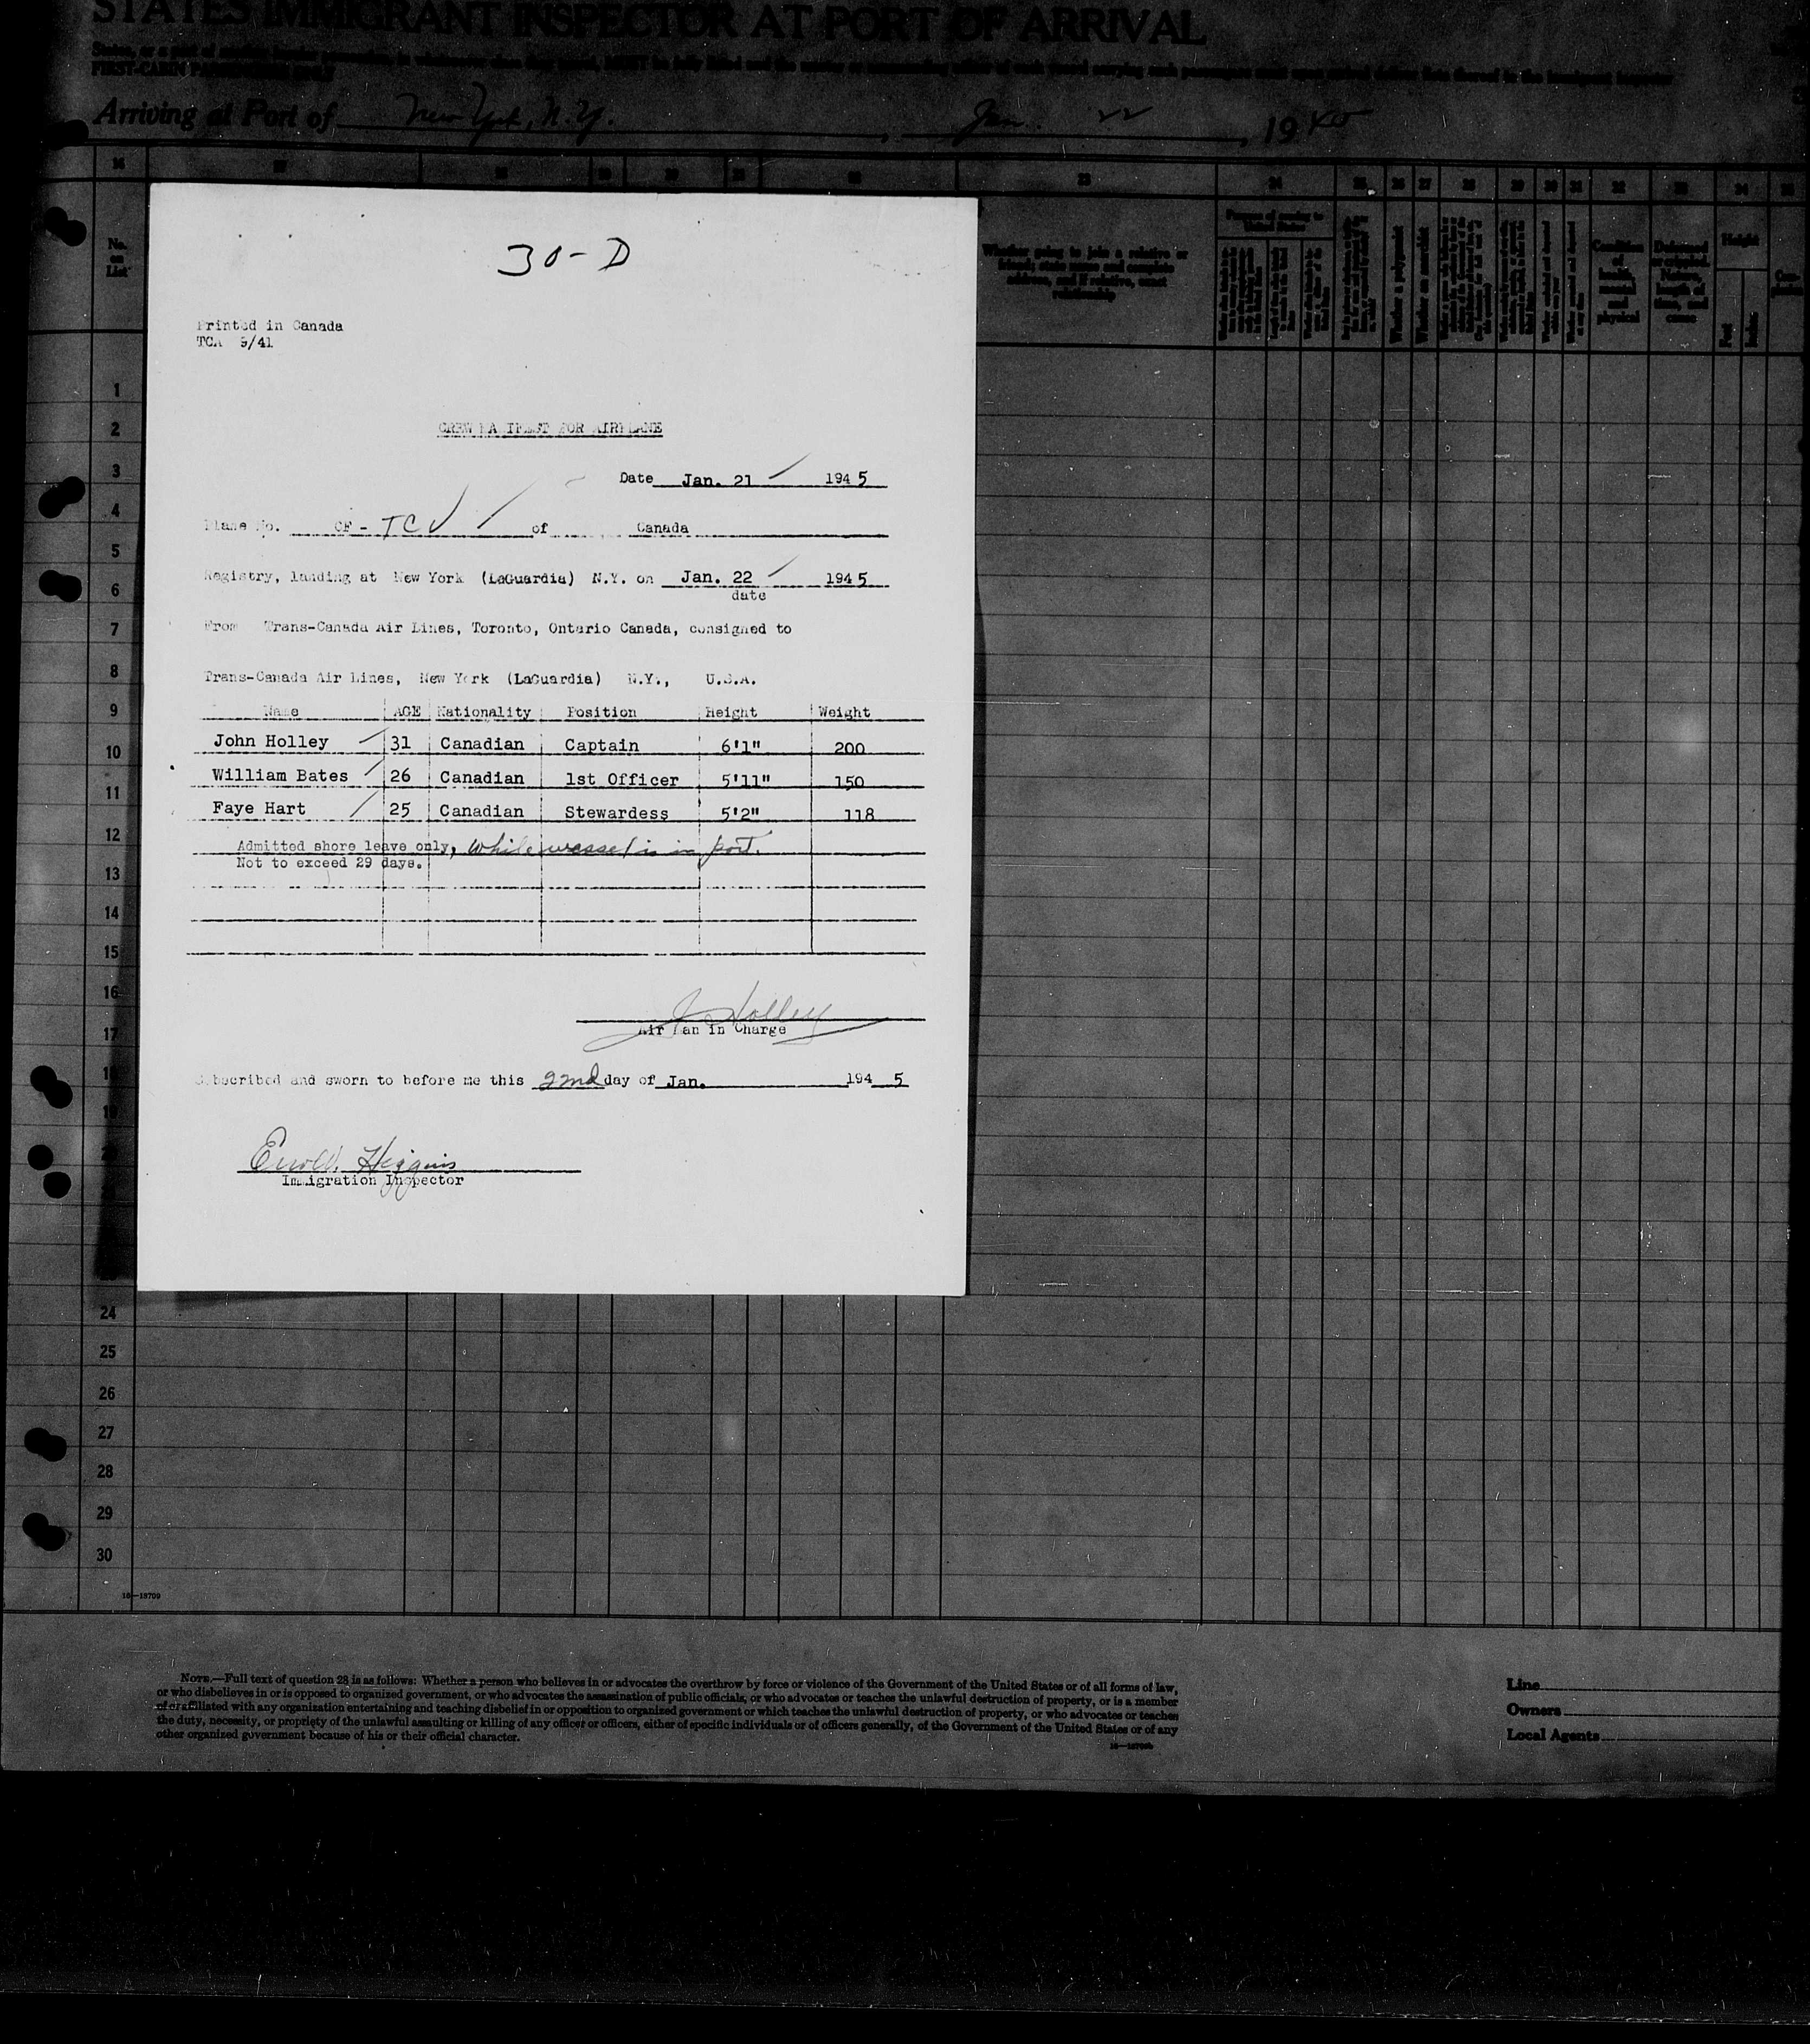 STATES IMMIGRANT INSPECTOR AT PORT OF ARRIVAL
Arriving at Port of New York, N.Y. , Jan. 22 , 19
16 17 23 24 26 27 28
No. on List
Whether going to join a relative or
Height
Feet
Inches
Whether a polygamist
Whether an anarchist
30-D
Printed in Canada
TCA 9/41
CREW MANIFEST FOR AIRPLANE
Date Jan. 21 1945
Plane No. CF - TCV of Canada
Registry, landing at New York (LaGuardia) N.Y. on Jan. 22 1945
date
From Trans-Canada Air Lines, Toronto, Ontario Canada, consigned to
Trans-Canada Air Lines, New York (LaGuardia) N.Y., U.S.A.
Name AGE Nationality Position Height Weight
John Holley 31 Canadian Captain 6'1" 200
William Bates 26 Canadian 1st Officer 5'11" 150
Faye Hart 25 Canadian Stewardess 5'2" 118
Admitted shore leave only, while vessel is in port.
Not to exceed 29 days.
J Holley
Air Man in Charge
Subscribed and sworn to before me this 22nd day of Jan. 194 5
Higgins
Immigration Inspector
1
2
3
4
5
6
7
8
9
10
11
12
13
14
15
16
17
18
19
24
25
26
27
28
29
30
16—18709
NOTE.—Full text of question 28 is as follows: Whether a person who believes in or advocates the overthrow by force or violence of the Government of the United States or of all forms of law,
or who disbelieves in or is opposed to organized government, or who advocates the assassination of public officials, or who advocates or teaches the unlawful destruction of property, or is a member
of or affiliated with any organization entertaining and teaching disbelief in or opposition to organized government or which teaches the unlawful destruction of property, or who advocates or teaches
the duty, necessity, or propriety of the unlawful assaulting or killing of any officer or officers, either of specific individuals or of officers generally, of the Government of the United States or of any
other organized government because of his or their official character.
Line
Owners
Local Agents